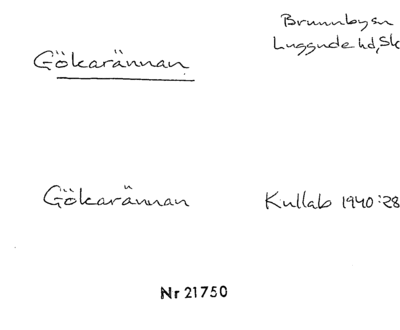 Brunnby sn
Luggude hd, Sk
Gökarännan
Gökarännan Kullab 1940:28
Nr 21750